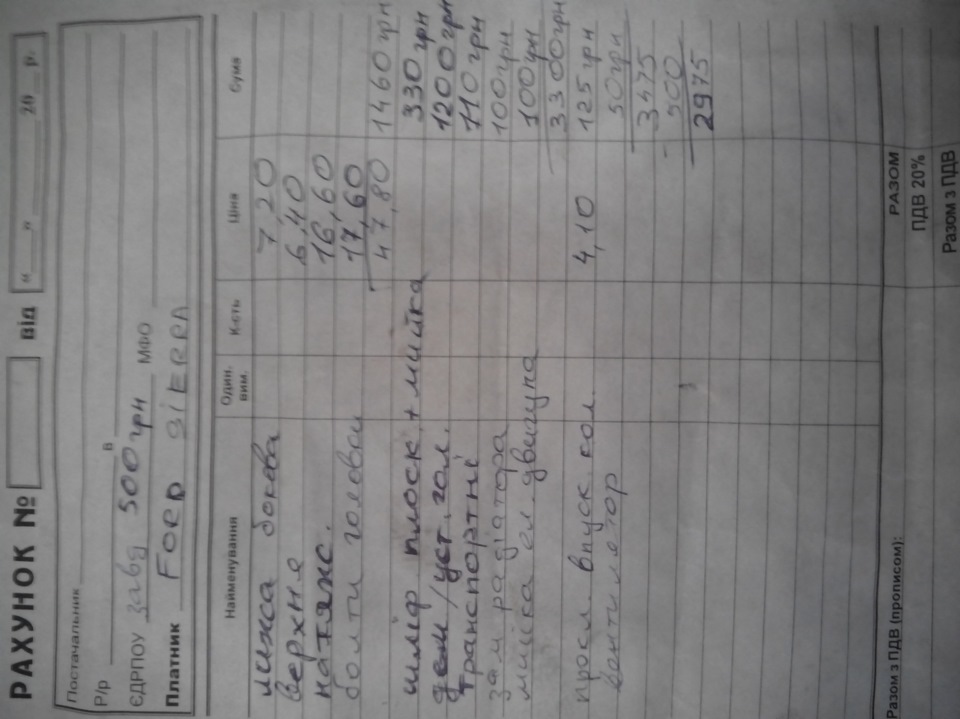 РАХУНОК № Від " " 20 р.
Постачальник
Р/р в
ЄДРПОУ завд 500 грн МФО
Платник FORD SIERRA
Найменування Один. вим. К-сть Ціна Сума
лижа бокова 7,20
верхня 6,40
натяжс. 16,60
болти головки 17,60
47,80 1460 грн
шліф плоск. + мийка 330 грн
дем/уст. гол. 1200 грн
транспортні 110 грн
зам радіатора 100 грн
мийка ел. двигуна 100 грн
3300 грн
прокл. впуск. кол. 4,10 125 грн
вентилятор 50 грн
3475
- 500
2975
РАЗОМ
ПДВ 20%
Разом з ПДВ (прописом): Разом з ПДВ